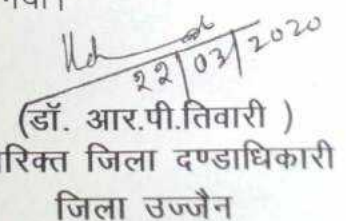 22/03/2020
(डॉ. आर.पी.तिवारी )
रिक्त जिला दण्डाधिकारी
जिला उज्जैन